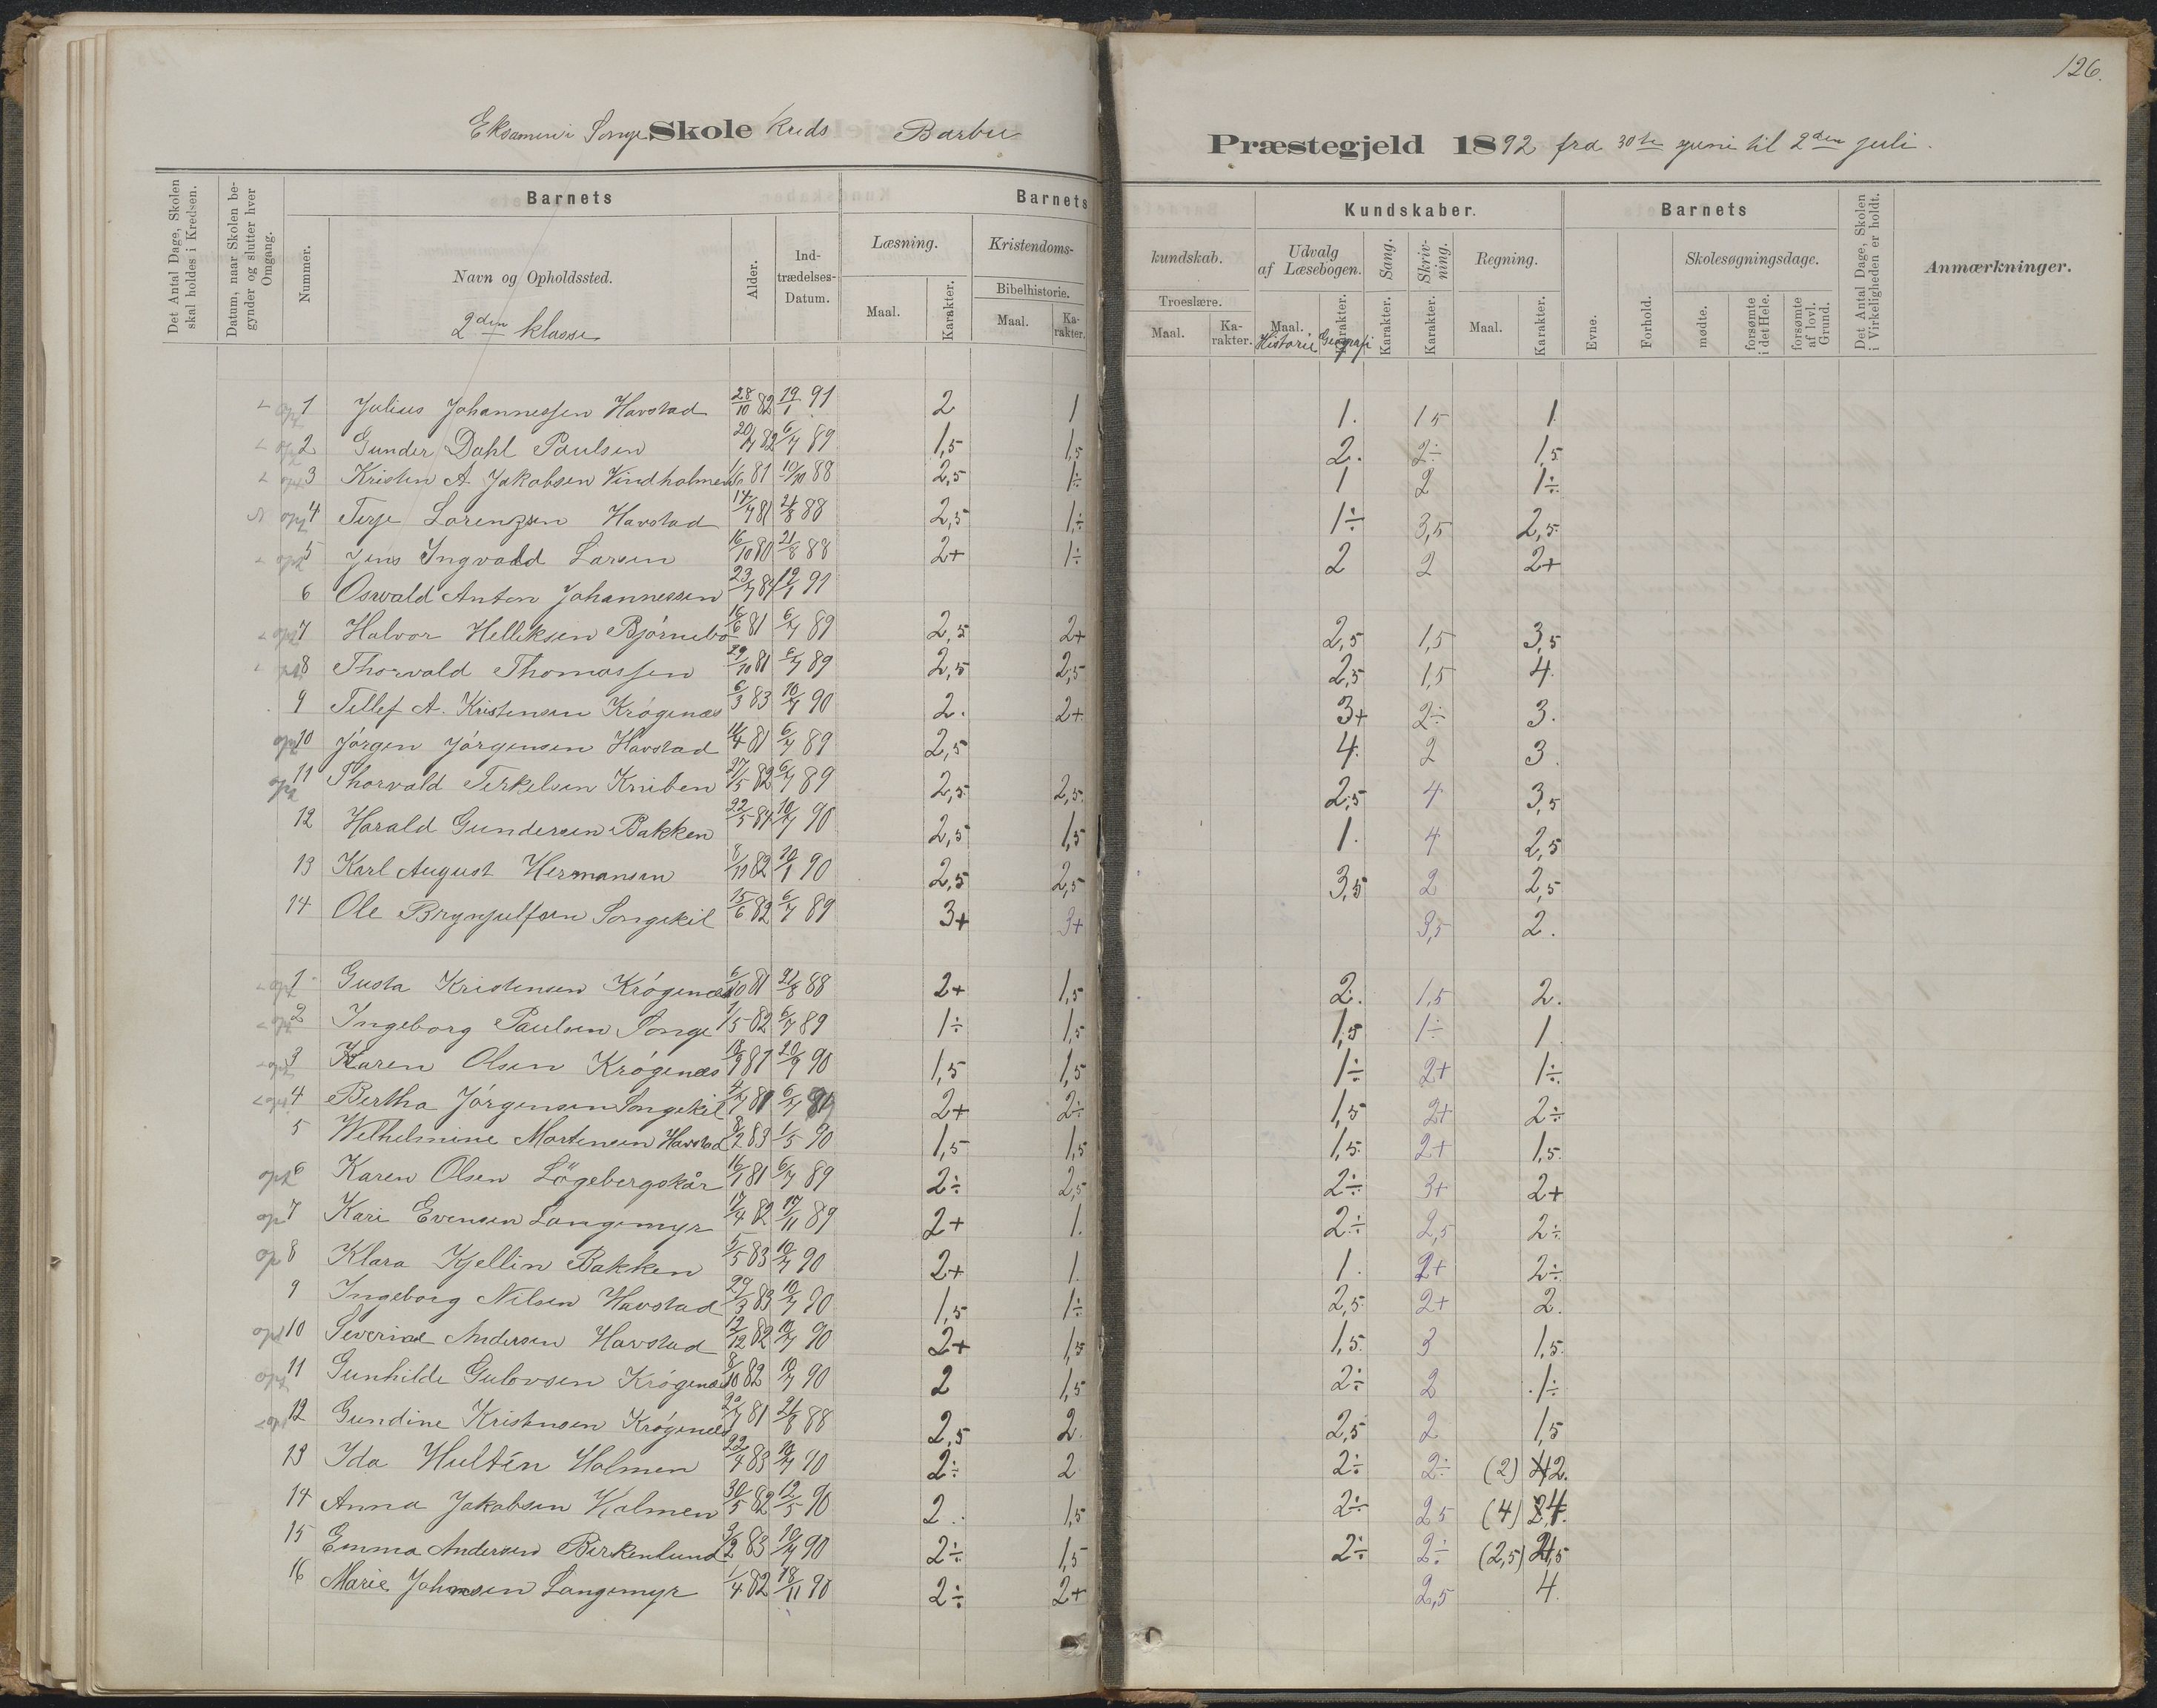 126.
Eksamen i Songe Skole Kreds Barbu Præstegjeld 1892 fra 30te juni til 2den juli.
Det Antal Dage, Skolen skal holdes i Kredsen.
Datum, naar Skolen begynder og slutter hver Omgang.
Nummer.
Barnets
Navn og Opholdssted.
2den klasse
Alder.
Indtrædelses-Datum.
Barnets Kundskaber.
Læsning. Maal. Karakter.
Kristendoms-kundskab.
Bibelhistorie. Maal. Karakter.
Troeslære. Maal. Karakter.
Udvalg af Læsebogen. Maal. Karakter.
Historie Geografi
Sang. Karakter.
Skrivning. Karakter.
Regning. Maal. Karakter.
Barnets
Evne. Forhold.
Skolesøgningsdage.
mødte. forsømte i det Hele. forsømte af lovl. Grund.
Det Antal Dage, Skolen i Virkeligheden er holdt.
Anmærkninger.
1 Julius Johannessen Havstad 28/10 82 19/1 91 2 1 1. 1 5 1.
2 Gunder Dahl Paulsen 82 6/7 89 1,5 1,5 2. 2÷ 1,5
3 Kristen A. Jakobsen Vindholmen 81 10/10 88 2,5 1÷ 1 2 1÷
opf 4 Terje Lorenzsen Havstad 81 21/8 88 2,5 1÷ 1÷ 3,5 2,5
5 Jens Ingvald Larsen 16/10 80 21/8 88 2+ 1÷ 2 2 2+
6 Oswald Anton Johannessen 19/1 91
7 Halvor Helliksen Bjørnebo 16/6 81 6/7 89 2,5 2+ 2,5 1,5 3,5
8 Thorvald Thomassen 29/10 81 6/7 89 2,5 2,5 2,5 1,5 4.
9 Tellef A. Kristensen Krøgenæs 6/3 83 10/7 90 2. 2+ 3+ 2÷ 3.
10 Jørgen Jørgensen Havstad 81 6/7 89 2,5 4. 2 3.
11 Thorvald Terkelsen Kniben 27/5 82 6/7 89 2,5 2,5. 2,5 4 3,5
12 Harald Gundersen Bakken 22/5 10/7 90 2,5 1,5 1. 4 2,5
13 Karl August Hermansen 82 90 2,5 2,5 3,5 2 2,5
14 Ole Brynjulfsen Songekil 15/6 82 6/7 89 3+ 3+ 3,5 2.
1 Gusta Kristensen Krøgenæs 6/10 81 21/8 88 2+ 1,5 2. 1,5 2.
2 Ingeborg Paulsen Songe 1/5 82 6/7 89 1÷ 1,5 1,5 1÷ 1
3 Karen Olsen Krøgenæs 90 1,5 1,5 1÷ 2+ 1÷
4 Bertha Jørgensen Songekil 2+ 2÷ 1,5 2+ 2÷
5 Wilhelmine Martensen Havstad 8/2 83 1/5 90 1,5 1,5 1,5. 2+ 1,5.
6 Karen Olsen Lögebergskår 81 6/7 89 2÷ 2,5 2÷ 3+ 2+
7 Kari Evensen Langemyr 17/4 82 17/11 89 2+ 1. 2÷ 2,5 2÷
op 8 Klara Kjellin Bakken 5/5 83 10/7 90 2+ 1. 1. 2+ 2÷
9 Ingeborg Nilsen Havstad 29/3 83 10/7 90 1,5 1÷ 2,5. 2+ 2.
10 Severine Andersen Havstad 12/12 82 10/7 90 2+ 1,5 1,5. 3 1,5.
11 Gunhilde Gulovsen Krøgenæs 8/10 82 10/7 90 2 1,5 2÷ 2 1÷
12 Gundine Kristensen Krøgenæs 81 21/8 88 2,5 2. 2,5 2 1,5
13 Ida Hultén Holmen 83 10/7 90 2÷ 2 2÷ 2÷ (2) 2.
14 Anna Jakobsen Holmen 30/5 82 12/5 90 2. 1,5 2÷ 2 5 (4) 4.
15 Emma Andersen Birkenlund 83 10/7 90 2÷ 1,5 2÷ 2÷ (2,5) 2,5
16 Marie Johnsen Langemyr 1/4 82 18/11 90 2÷ 2+ 2,5 4.